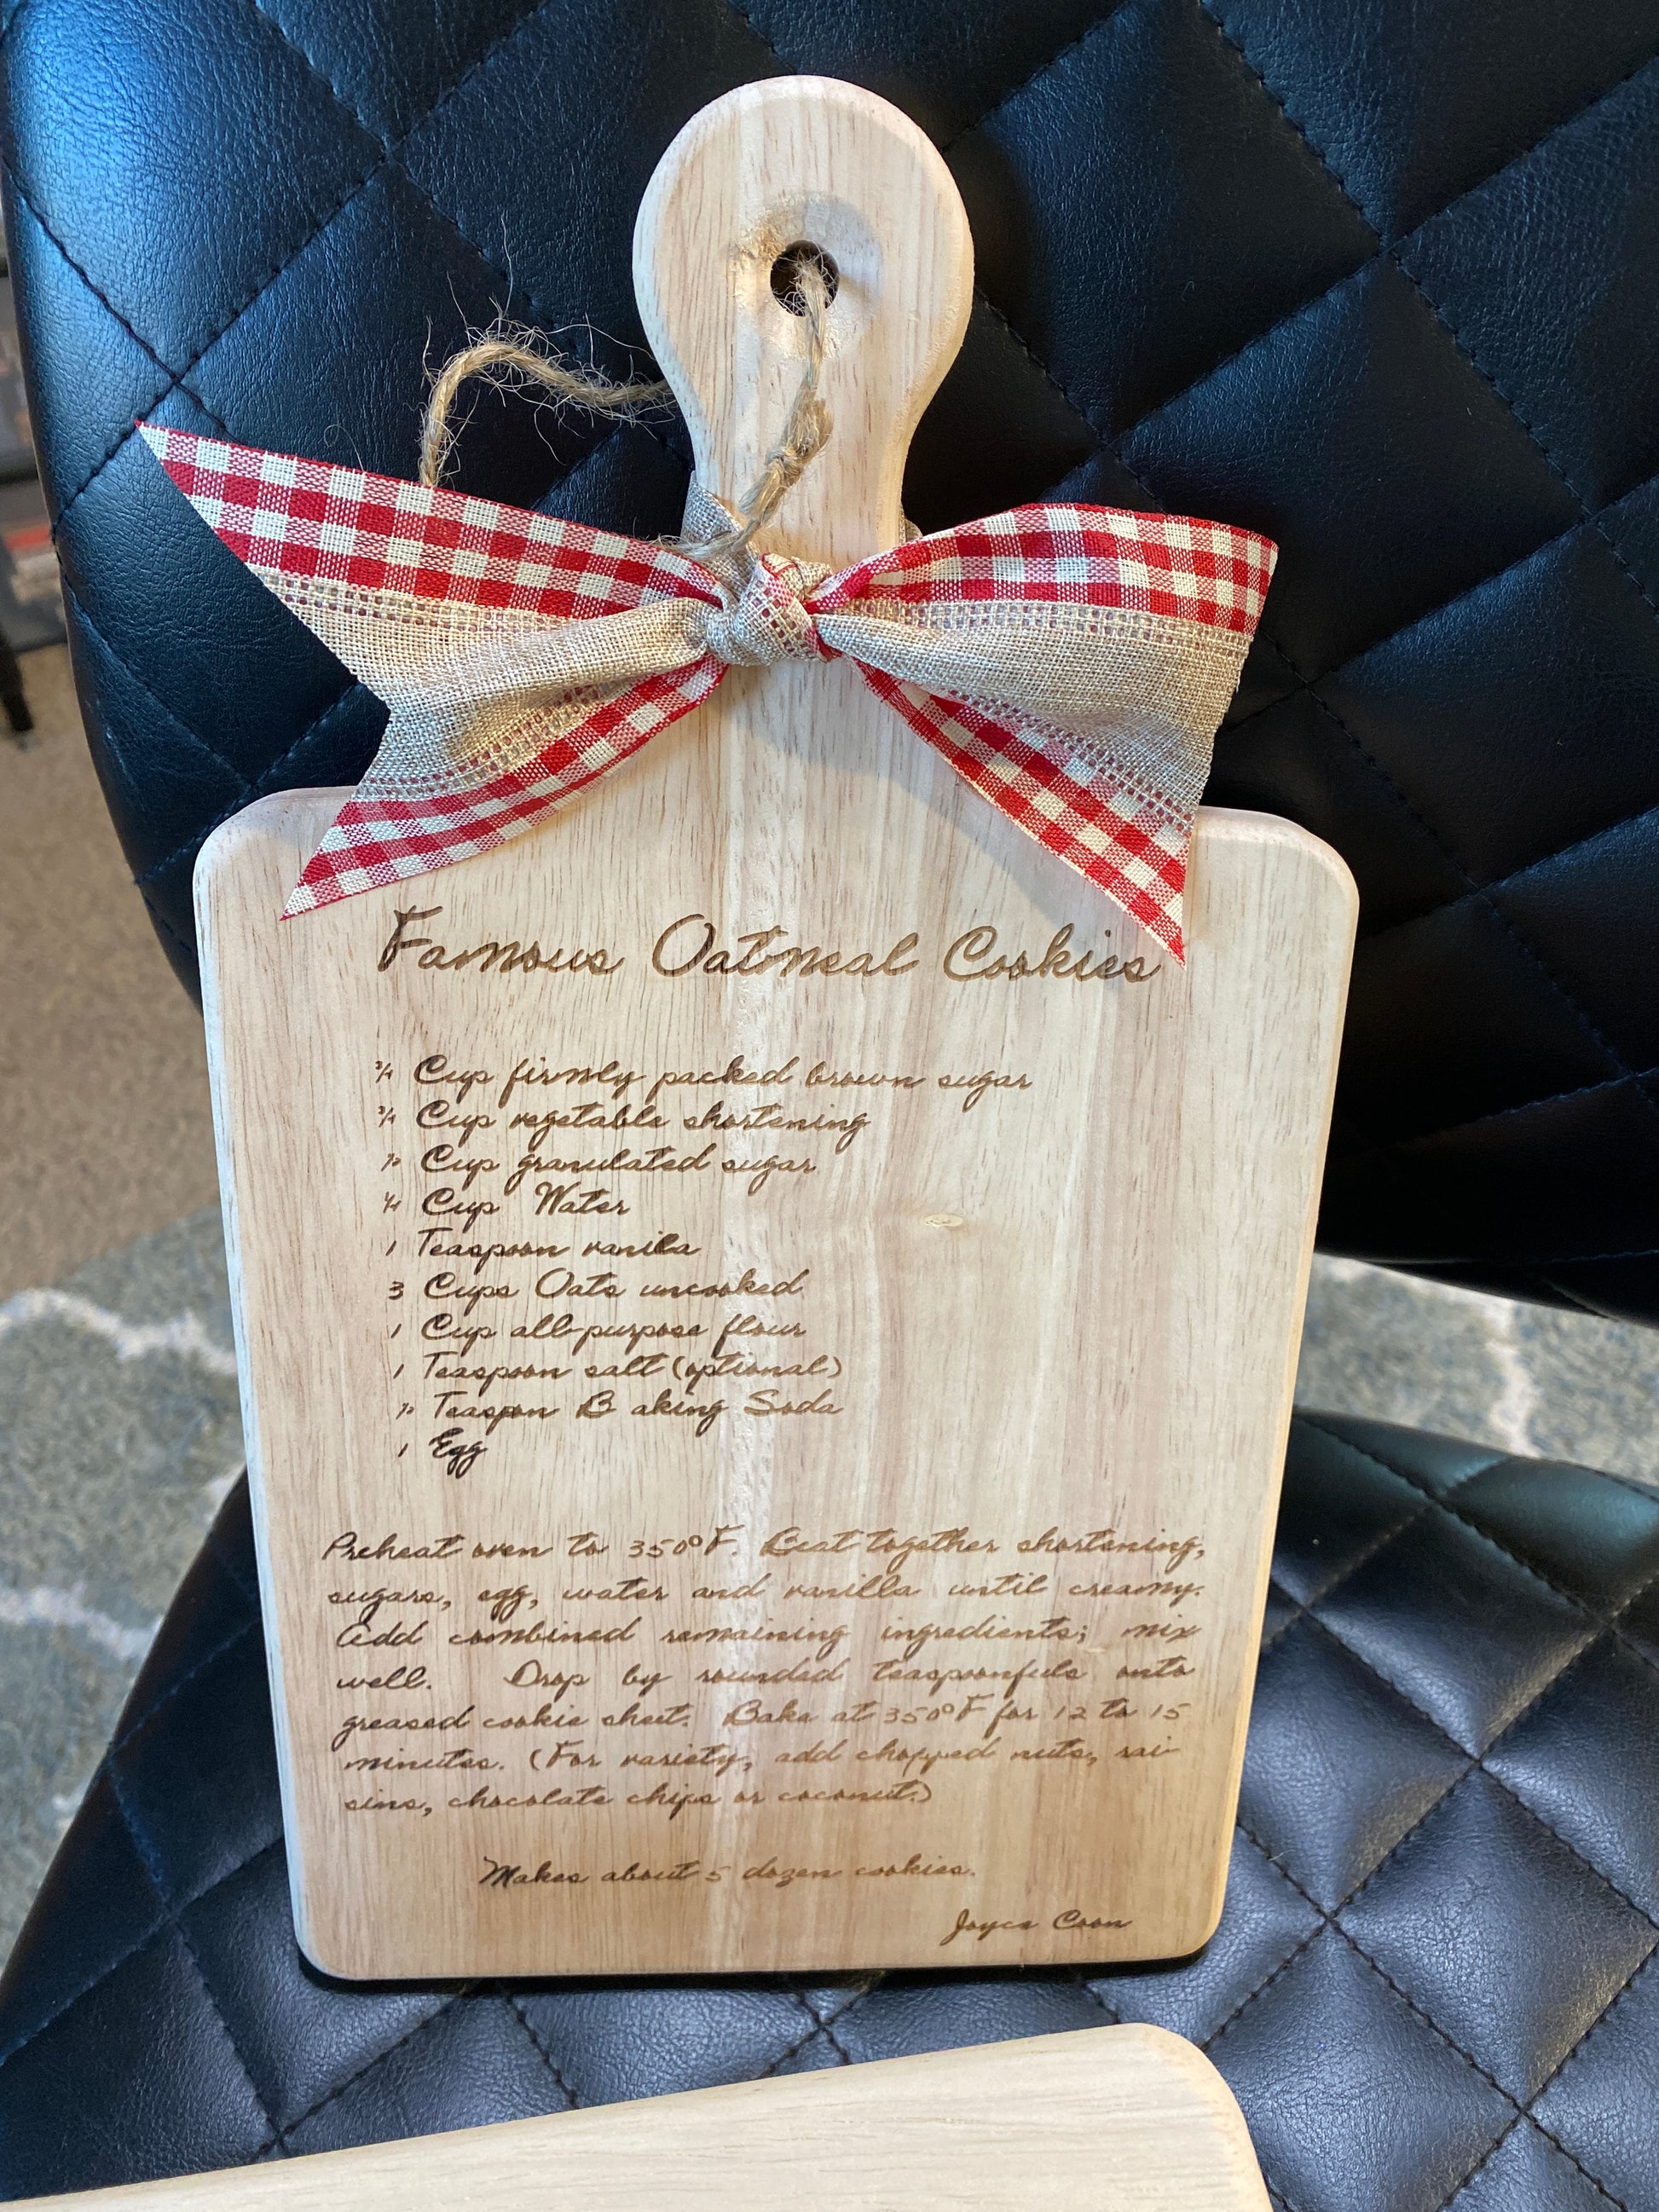 Famous Oatmeal Cookies
3/4 Cup firmly packed brown sugar
3/4 Cup vegetable shortening
1/2 Cup granulated sugar
1/4 Cup Water
1 Teaspoon vanila
3 Cups Oats uncooked
1 Cup all-purpose flour
1 Teaspoon salt (optional)
1/2 Teaspon B aking Soda
1 Egg
Preheat oven to 350°F. Beat together shortening,
sugars, egg, water and vanilla until creamy.
Add combined remaining ingredients; mix
well. Drop by rounded teaspoonfuls onto
greased cookie sheet. Bake at 350°F for 12 to 15
minutes. (For variety, add chopped nuts, rai-
sins, chocolate chips or coconut.)
Makes about 5 dozen cookies.
Joyce Coon